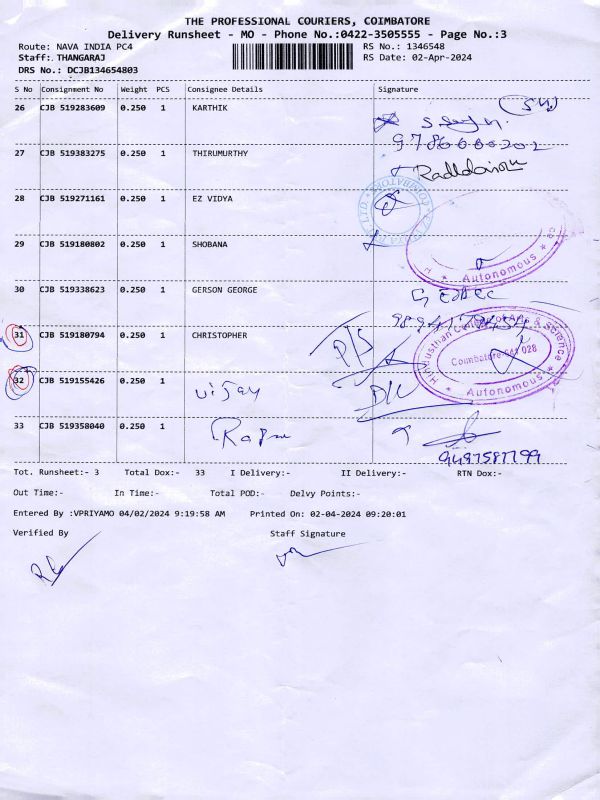 THE PROFESSIONAL COURIERS, COIMBATORE
Delivery Runsheet - MO - Phone No.:0422-3505555 - Page No.:3
Route: NAVA INDIA PC4 RS No.: 1346548
Staff:. THANGARAJ RS Date: 02-Apr-2024
DRS No.: DCJB134654803
S No Consignment No Weight PCS Consignee Details Signature
26 CJB 519283609 0.250 1 KARTHIK
27 CJB 519383275 0.250 1 THIRUMURTHY
28 CJB 519271161 0.250 1 EZ VIDYA
29 CJB 519180802 0.250 1 SHOBANA
Autonomous
30 CJB 519338623 0.250 1 GERSON GEORGE
31 CJB 519180794 0.250 1 CHRISTOPHER
Hindusthan College of Arts & Science
Coimbatore-641 028
Autonomous
32 CJB 519155426 0.250 1 vijay
33 CJB 519358040 0.250 1
9487587799
Tot. Runsheet:- 3 Total Dox:- 33 I Delivery:- II Delivery:- RTN Dox:-
Out Time:- In Time:- Total POD:- Delvy Points:-
Entered By :VPRIYAMO 04/02/2024 9:19:58 AM Printed On: 02-04-2024 09:20:01
Verified By Staff Signature